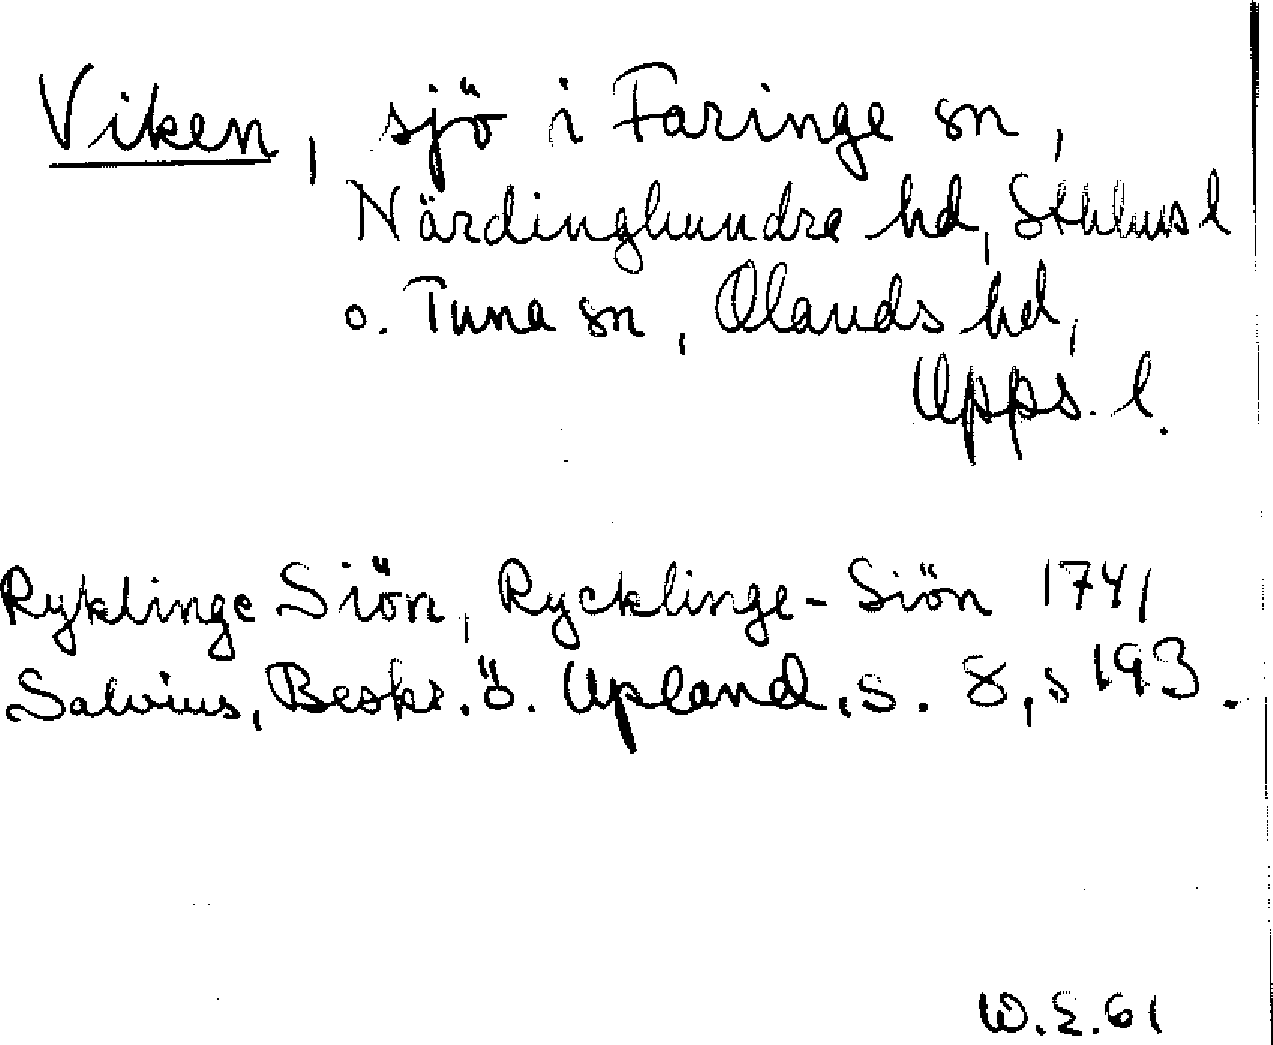 Viken, sjö i Faringe sn,
Närdinghundra hd, Sthlms l
o. Tuna sn, Olands hd,
Upps. l.
Ryklinge Siön, Rycklinge-Siön 1741
Salvius, Beskr. ö. Upland, s. 8, s 193.
W.E.61